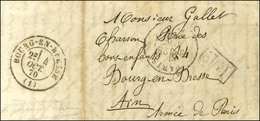 Monsieur Gallet
Charron Rue des
24
Bourg en Bresse
Ain
Armée de Paris
BOURG-EN-BRESSE
OCT.
70
(1)